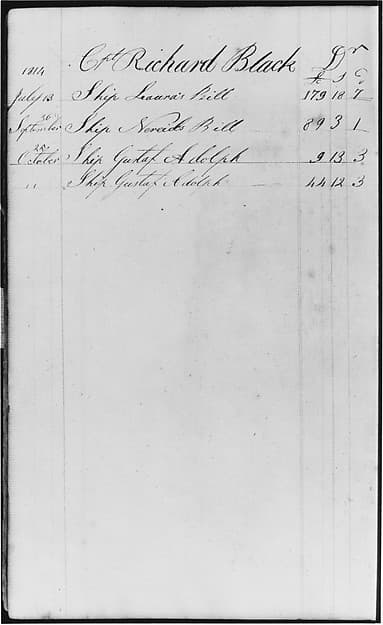 1814 Cpt Richard Black Dr
£ S d
July 13 Ship Laura's Bill 179 18 7
September 26 Ship Nereid's Bill 89 3 1
October 25 Ship Gustaf Adolph 9 13 3
" Ship Gustaf Adolph 44 12 3